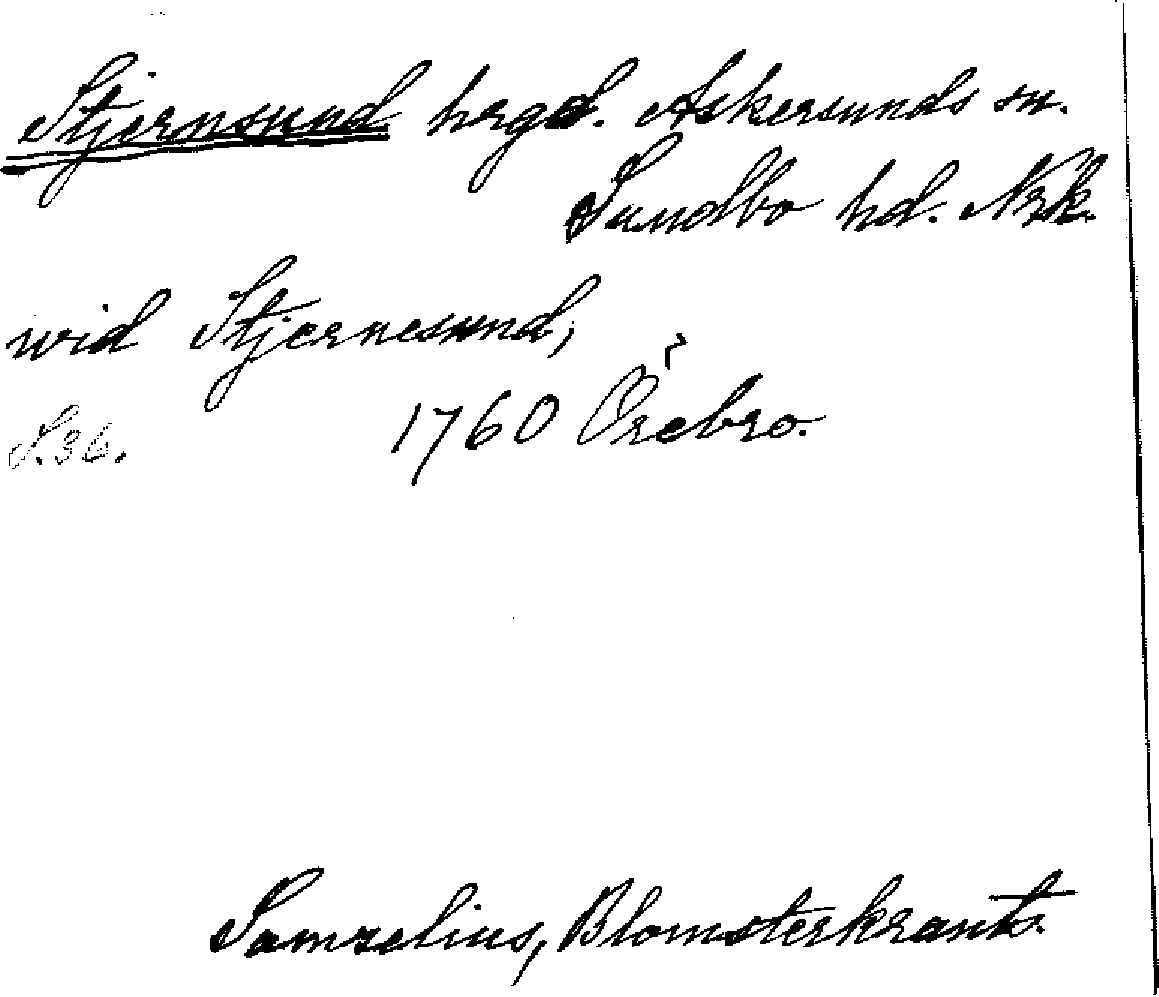 Stjernsund hrgd. Askersunds sn.
Sundbo hd. Nrk.
wid Stjernesund,
S. 36. 1760 Örebro.
Samzelius, Blomsterkrants.